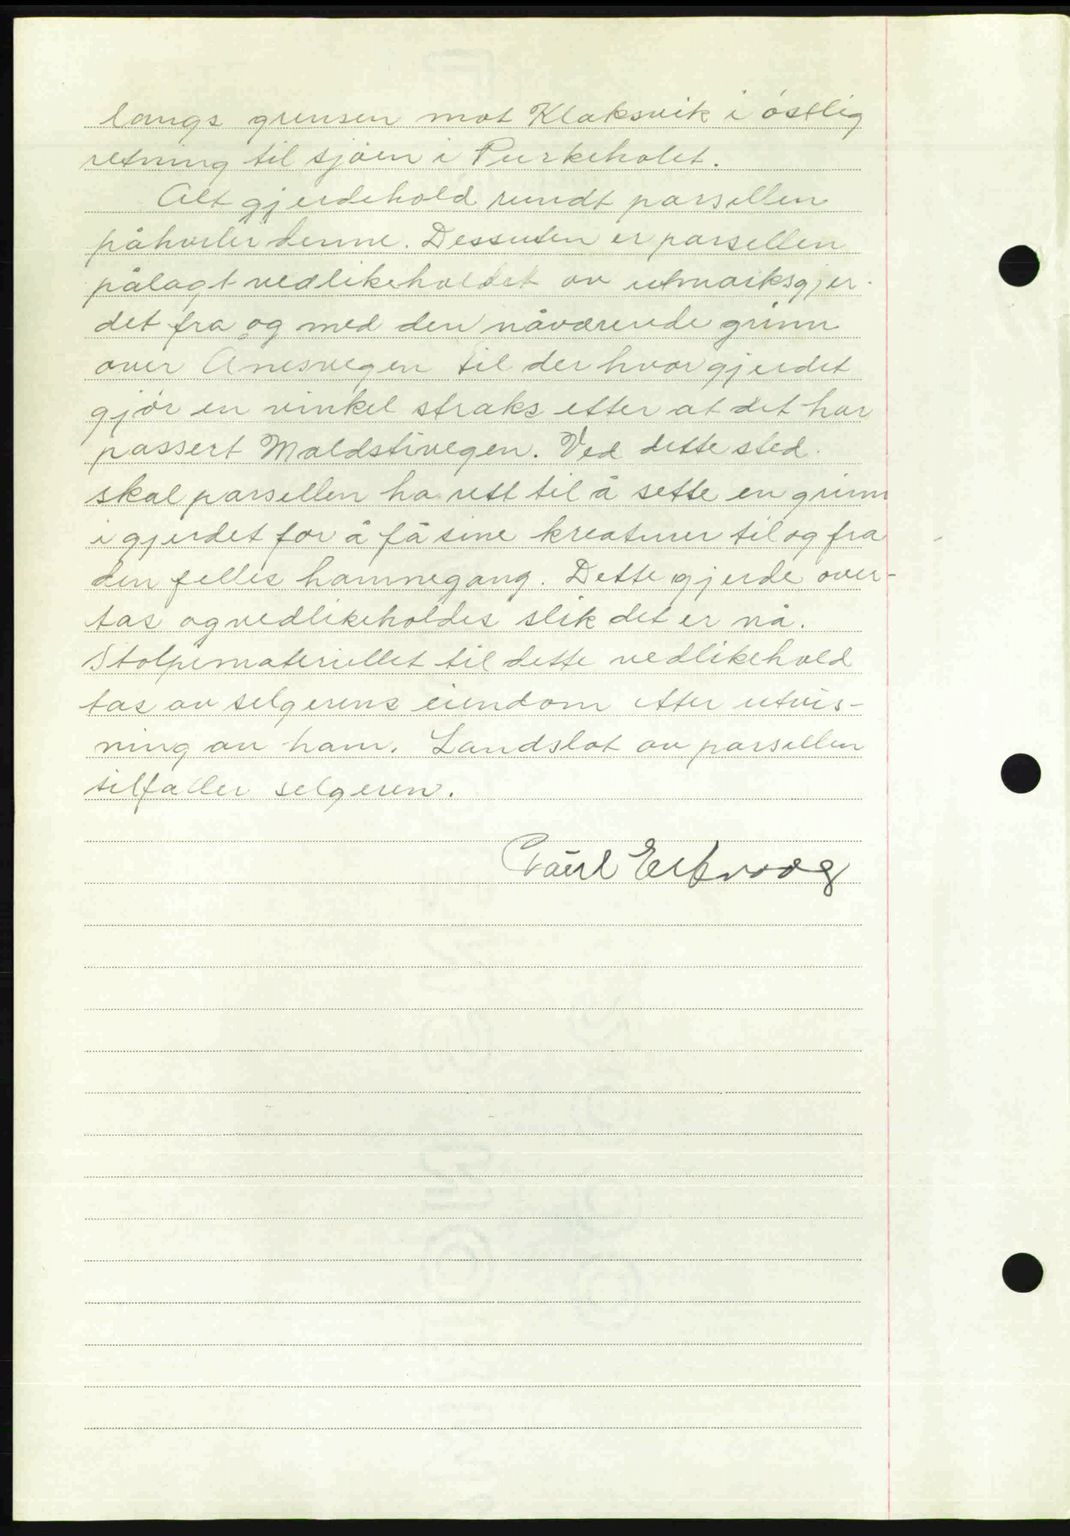 langs grensen mot Klaksvik i östlig
retning til sjöen i Purkeholet.
Alt gjerdehold rundt parsellen
påhviler denne. Dessuten er parsellen
pålagt vedlikeholdet av utmarksgjer-
det fra og med den nåværende grinn
over Anesvegen til der hvor gjerdet
gjör en vinkel straks etter at det har
passert Maldstivegen. Ved dette sted
skal parsellen ha rett til å sette en grinn
i gjerdet for å få sine kreaturer til og fra
den felles hamnegang. Dette gjerde over-
tas og vedlikeholdes slik det er nå.
Stolpemateriellet til dette vedlikehold
tas av selgerens eiendom etter utvis-
ning av ham. Landslot av parsellen
tilfaller selgeren.